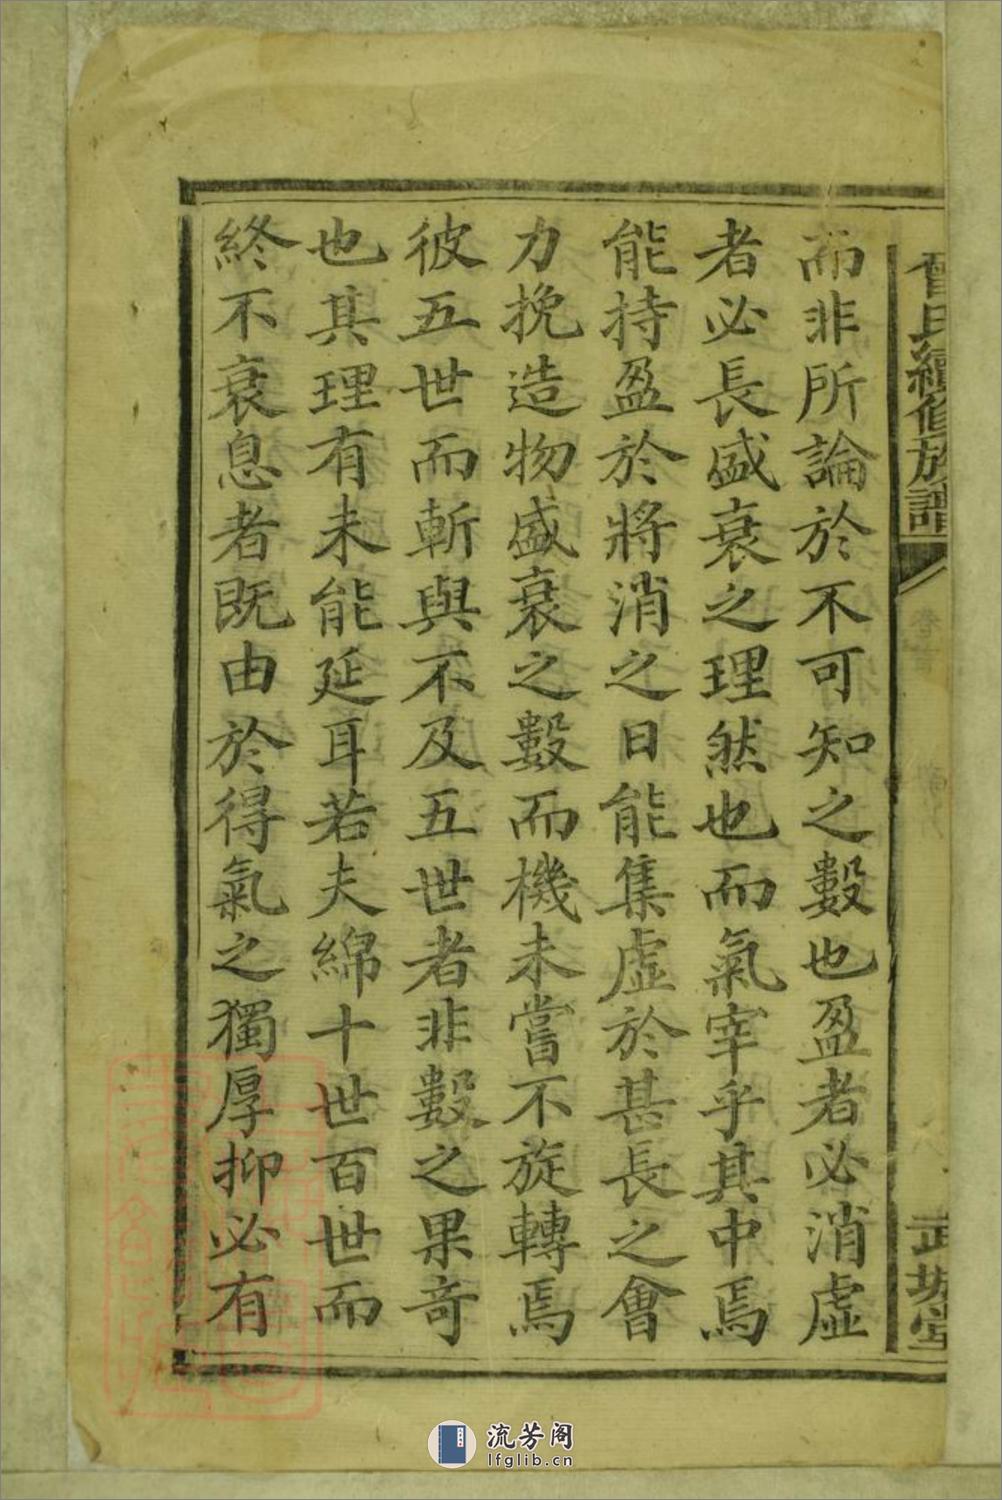 曾氏續修族譜
卷首
武城堂
而非所論於不可知之數也盈者必消虛
者必長盛衰之理然也而氣宰乎其中焉
能持盈於將消之日能集虛於甚長之會
力挽造物盛衰之數而機未嘗不旋轉焉
彼五世而斬與不及五世者非數之果奇
也其理有未能延耳若夫綿十世百世而
終不衰息者既由於得氣之獨厚抑必有
流芳阁
lfglib.cn